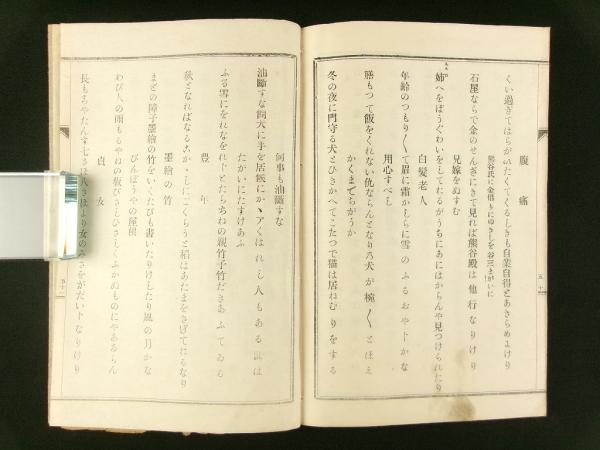 腹痛
くい過ぎてはらがいたくてくるしきも自業自得とあきらめよけり
熊谷氏に金借りにゆきしを谷三まがいに
石屋ならで金のせんぎにきて見れば熊谷殿は他行なりけり
兄嫁をぬすむ
姉へをぼうぐわいをしてゐるがうちにあにはからんや見つけられたり
白髪老人
年齢のつもり〱て眉に霜かしらに雪のふるおやぢかな
用心すべし
膳もつて飯をくれない仇ならんとなりの犬が椀〱とほえ
かくまでちがうか
冬の夜に門守る犬とひきかへてこたつで猫は居ねむりをする
何事も油斷すな
油斷すな飼犬に手を居候にかゝアくはれし人もある
たがいにたすけあふ
ふる雪にをれなをれ
親竹子竹だきあふてゐる
豊年
秋となればなるほか
稻はあたまをさげてゐるなり
墨繪の竹
まどの障子墨繪の竹をいくたびも書いたりけしたり風の月かな
びんぼうやの屋根
わび人の雨もるやねの板びさしひさしくふかぬものにやあるらん
貞女
長もちやたんす七さほ八さほより女のみさをがだい下なりけり
五十